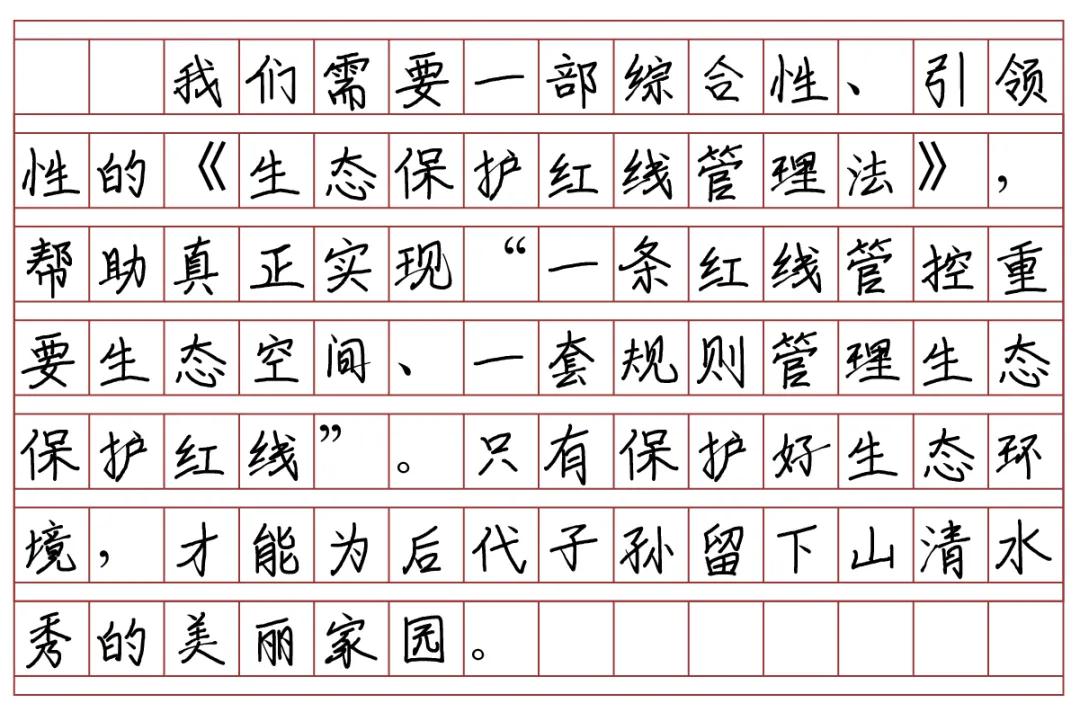 我们需要一部综合性、引领
性的《生态保护红线管理法》，
帮助真正实现“一条红线管控重
要生态空间、一套规则管理生态
保护红线”。只有保护好生态环
境，才能为后代子孙留下山清水
秀的美丽家园。